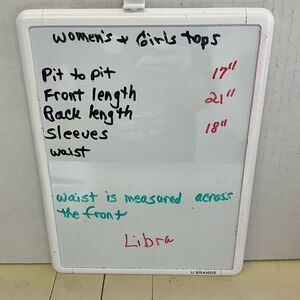 women's + Girls tops
Pit to pit 17"
Front length 21"
Back length
Sleeves 18"
waist
waist is measured across
the front
Libra
U BRANDS